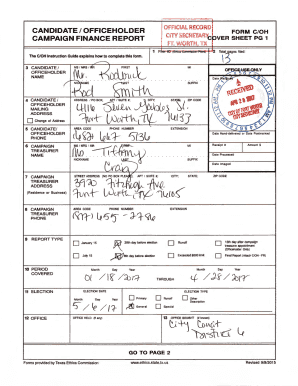 CANDIDATE / OFFICEHOLDER
CAMPAIGN FINANCE REPORT
OFFICIAL RECORD
CITY SECRETARY
FT. WORTH, TX
FORM C/OH
COVER SHEET PG 1
The C/OH Instruction Guide explains how to complete this form.
13
3 CANDIDATE / OFFICEHOLDER NAME
MS / MRS / MR FIRST MI
Mr. Roderick
NICKNAME LAST SUFFIX
Rod Smith
OFFICE USE ONLY
RECEIVED
APR 28 2017
CITY OF FORT WORTH
CITY SECRETARY
4 CANDIDATE / OFFICEHOLDER MAILING ADDRESS
Change of Address
ZIP CODE
Fort Worth, TX 76133
5 CANDIDATE / OFFICEHOLDER PHONE
AREA CODE PHONE NUMBER EXTENSION
(682) 667 5136
Date Hand-delivered or Date Postmarked
6 CAMPAIGN TREASURER NAME
MS / MRS / MR FIRST MI
Tiffany
NICKNAME LAST SUFFIX
Craig
Receipt # Amount $
Date Processed
Date Imaged
7 CAMPAIGN TREASURER ADDRESS
(Residence or Business)
CITY; STATE; ZIP CODE
3720 Fitzhugh Ave
Fort Worth, TX 76105
8 CAMPAIGN TREASURER PHONE
AREA CODE PHONE NUMBER EXTENSION
(817) 655-2786
9 REPORT TYPE
January 15
30th day before election
Runoff
15th day after campaign treasurer appointment (Officeholder Only)
July 15
8th day before election
Exceeded $500 limit
Final Report (Attach C/OH - FR)
10 PERIOD COVERED
Month Day Year
01 / 18 / 2017 THROUGH 4 / 28 / 2017
11 ELECTION
ELECTION DATE
Month Day Year
5 / 6 / 17
ELECTION TYPE
Primary Runoff Other Description
General Special
12 OFFICE
OFFICE HELD (if any)
13 OFFICE SOUGHT (if known)
City Council
District 8
GO TO PAGE 2
Forms provided by Texas Ethics Commission www.ethics.state.tx.us Revised 9/8/2015